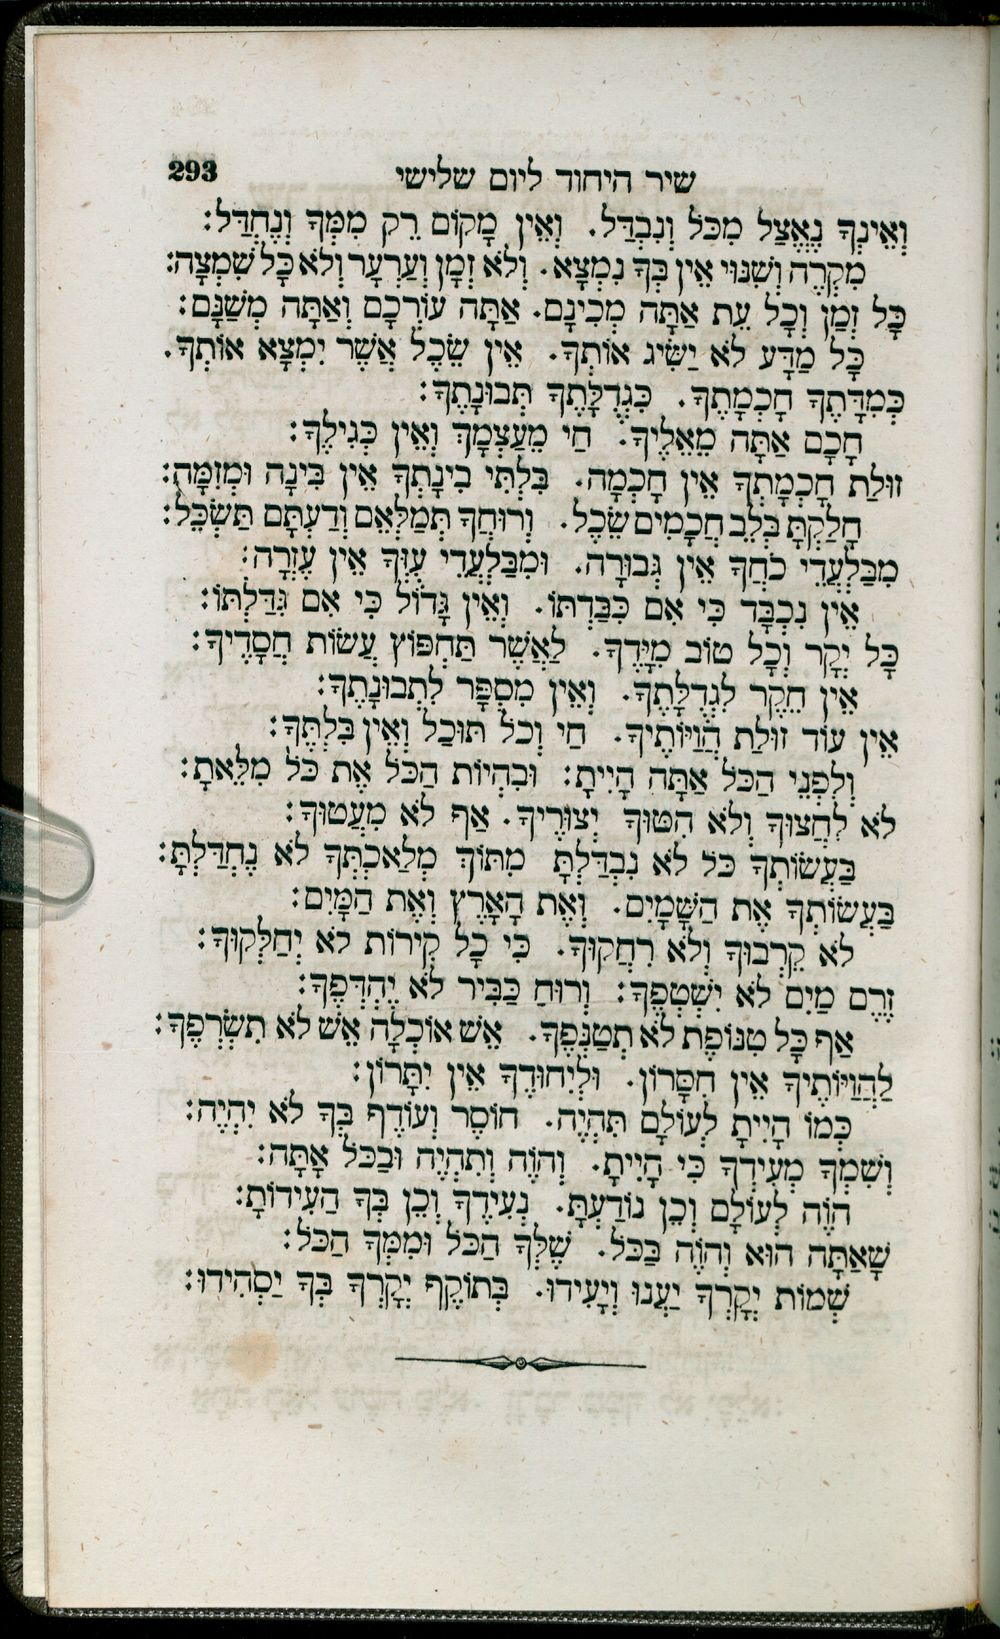 שיר היחוד ליום שלישי 293
וְאֵינְךָ נֶאֱצַל מִכֹּל וְנִבְדַּל. וְאֵין מָקוֹם רֵק מִמְּךָ וְנֶחְדַּל:
מִקְרֶה וְשִׁנּוּי אֵין בְּךָ נִמְצָא. וְלֹא זְמָן וְעַרְעָר וְלֹא כָּל שִׁמְצָה:
כָּל זְמַן וְכָל עֵת אַתָּה מְכִינָם. אַתָּה עוֹרְכָם וְאַתָּה מְשַׁנָּם:
כָּל מַדָּע לֹא יַשִּׂיג אוֹתְךָ. אֵין שֵׂכֶל אֲשֶׁר יִמְצָא אוֹתְךָ.
כְּמִדָּתְךָ חָכְמָתֶךָ. כִּגְדֻלָּתְךָ תְּבוּנָתֶךָ:
חָכָם אַתָּה מֵאֵלֶיךָ. חַי מֵעַצְמָךְ וְאֵין כְּגִילֶךָ:
זוּלַת חָכְמָתְךָ אֵין חָכְמָה. בִּלְתִּי בִינָתְךָ אֵין בִּינָה וּמְזִמָּה:
חָלַקְתָּ בְּלֵב חֲכָמִים שֵׂכֶל. וְרוּחֲךָ תְּמַלְאֵם וְדַעְתָּם תַּשְׂכֵּל:
מִבַּלְעֲדֵי כֹחֲךָ אֵין גְּבוּרָה. וּמִבַּלְעֲדֵי עֻזְּךָ אֵין עֶזְרָה:
אֵין נִכְבָּד כִּי אִם כִּבַּדְתּוֹ. וְאֵין גָּדוֹל כִּי אִם גִּדַּלְתּוֹ:
כָּל יְקָר וְכָל טוֹב מִיָּדֶךָ. לַאֲשֶׁר תַּחְפּוֹץ עֲשׂוֹת חֲסָדֶיךָ:
אֵין חֵקֶר לִגְדֻלָּתֶךָ. וְאֵין מִסְפָּר לִתְבוּנָתֶךָ:
אֵין עוֹד זוּלַת הֲוָיוֹתֶיךָ. חַי וְכֹל תּוּכַל וְאֵין בִּלְתֶּךָ:
וְלִפְנֵי הַכֹּל אַתָּה הָיִיתָ: וּבִהְיוֹת הַכֹּל אֶת כֹּל מִלֵּאתָ:
לֹא לְחָצוּךָ וְלֹא הִטּוּךָ יְצוּרֶיךָ. אַף לֹא מִעֲטוּךָ:
בַּעֲשׂוֹתְךָ כֹּל לֹא נִבְדַּלְתָּ מִתּוֹךְ מְלַאכְתְּךָ לֹא נֶחְדַּלְתָּ:
בַּעֲשׂוֹתְךָ אֶת הַשָּׁמָיִם. וְאֶת הָאָרֶץ וְאֶת הַמָּיִם:
לֹא קֵרְבוּךָ וְלֹא רִחֲקוּךָ. כִּי כָל קִירוֹת לֹא יְחַלְּקוּךָ:
זֶרֶם מַיִם לֹא יִשְׁטְפֶךָ: וְרוּחַ כַּבִּיר לֹא יֶהְדְּפֶךָ:
אַף כָּל טִנּוֹפֶת לֹא תְטַנְּפֶךָ. אֵשׁ אוֹכְלָה אֵשׁ לֹא תִשְׂרְפֶךָ:
לַהֲוָיוֹתֶיךָ אֵין חִסָּרוֹן. וּלְיִחוּדְךָ אֵין יִתָּרוֹן:
כְּמוֹ הָיִיתָ לְעוֹלָם תִּהְיֶה. חוֹסֶר וְעוֹדֶף בְּךָ לֹא יִהְיֶה:
וְשִׁמְךָ מְעִידְךָ כִּי הָיִיתָ. וְהוֹוֶה וְתִהְיֶה וּבַכֹּל אָתָּה:
הוֹוֶה לְעוֹלָם וְכֵן נוֹדַעְתָּ. נְעִידְךָ וְכֵן בְּךָ הַעִידוֹתָ:
שָׁאַתָּה הוּא וְהוֹוֶה בַּכֹּל. שֶׁלְּךָ הַכֹּל וּמִמְּךָ הַכֹּל:
שְׁמוֹת יְקָרְךָ יַעֲנוּ וְיָעִידוּ. בְּתוֹקֶף יְקָרְךָ בְּךָ יַסְהִידוּ: